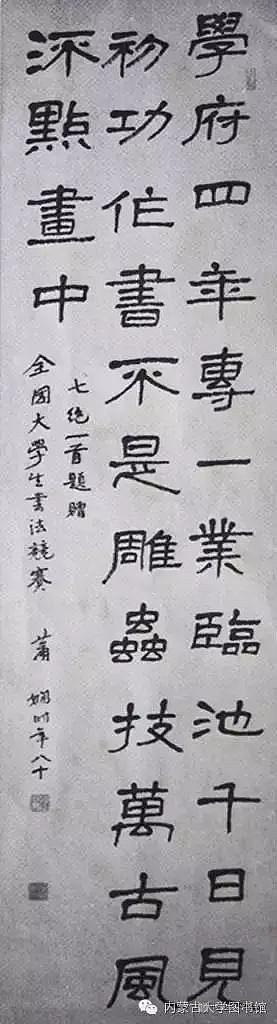 學府四年專一業臨池千日見
初功作書不是雕蟲技萬古風
流點畫中
七绝一首題贈
全國大學生書法競賽 蕭嫻时年八十
内蒙古大学图书馆